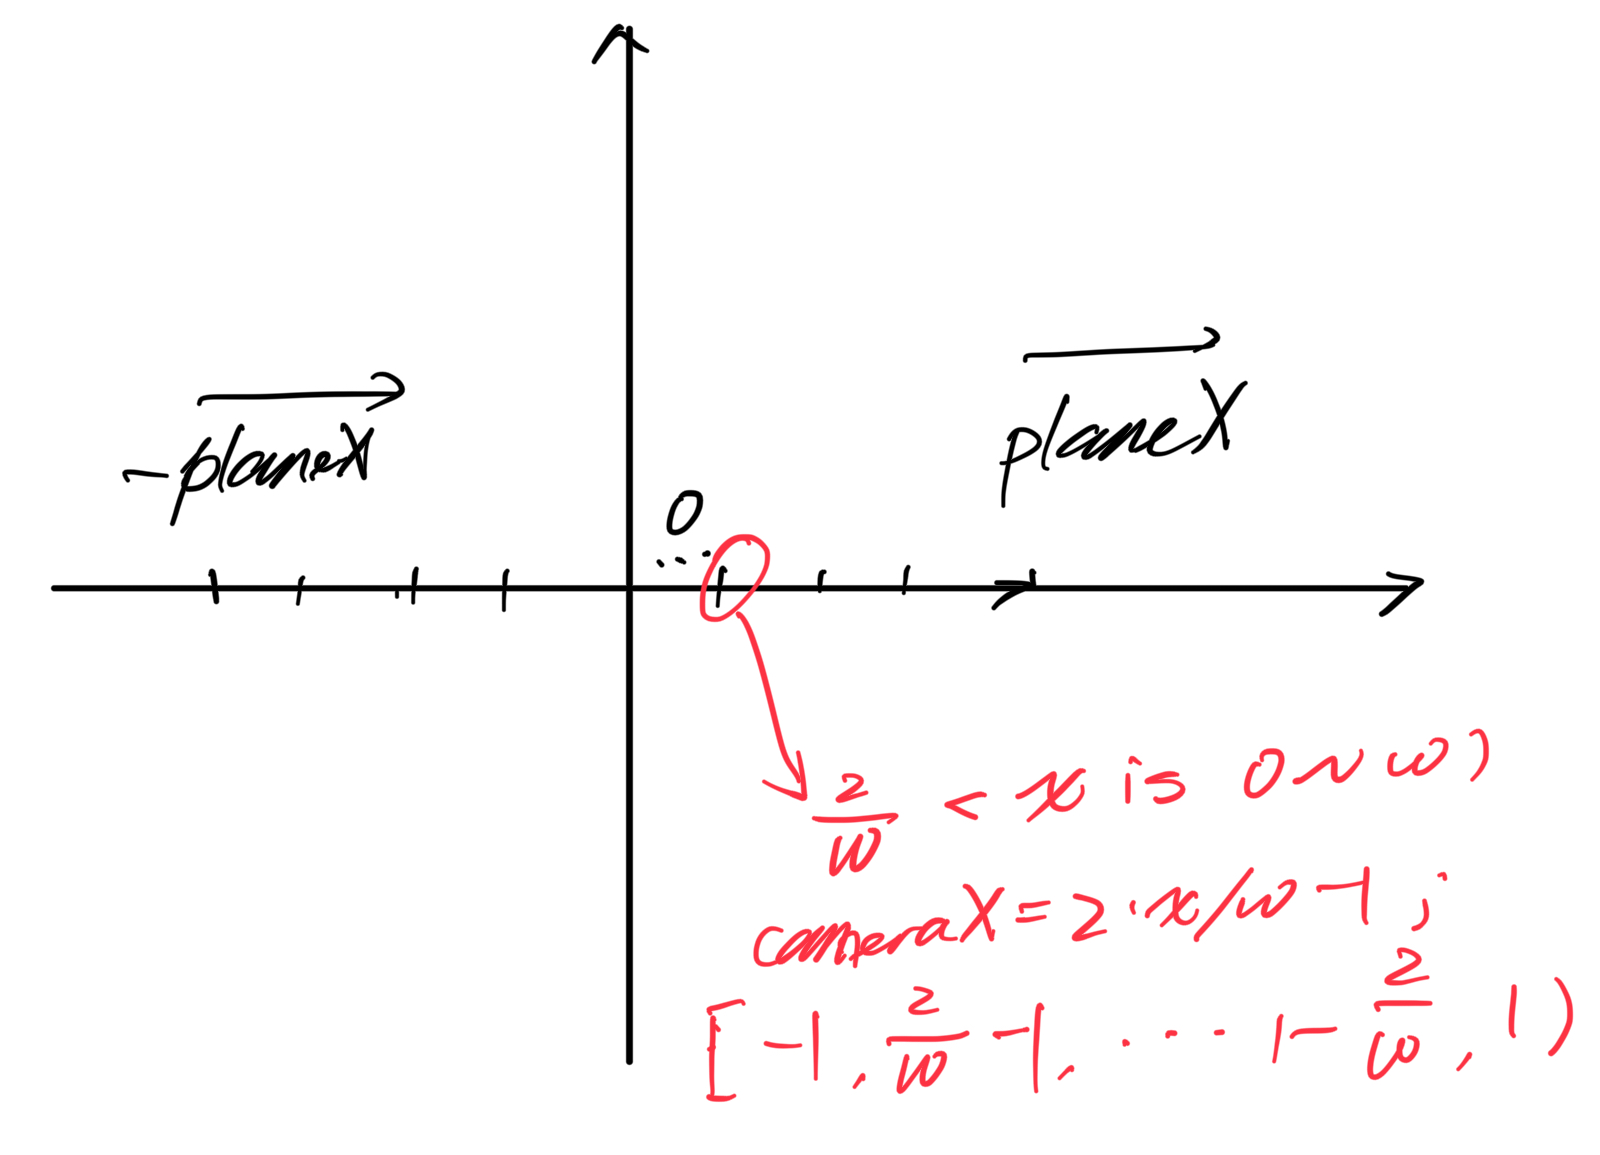 planeX
-planeX
0
...
2/w < x is 0 ~ w)
cameraX = 2·x/w -1 ;
[ -1, 2/w -1, ··· 1- 2/w, 1 )